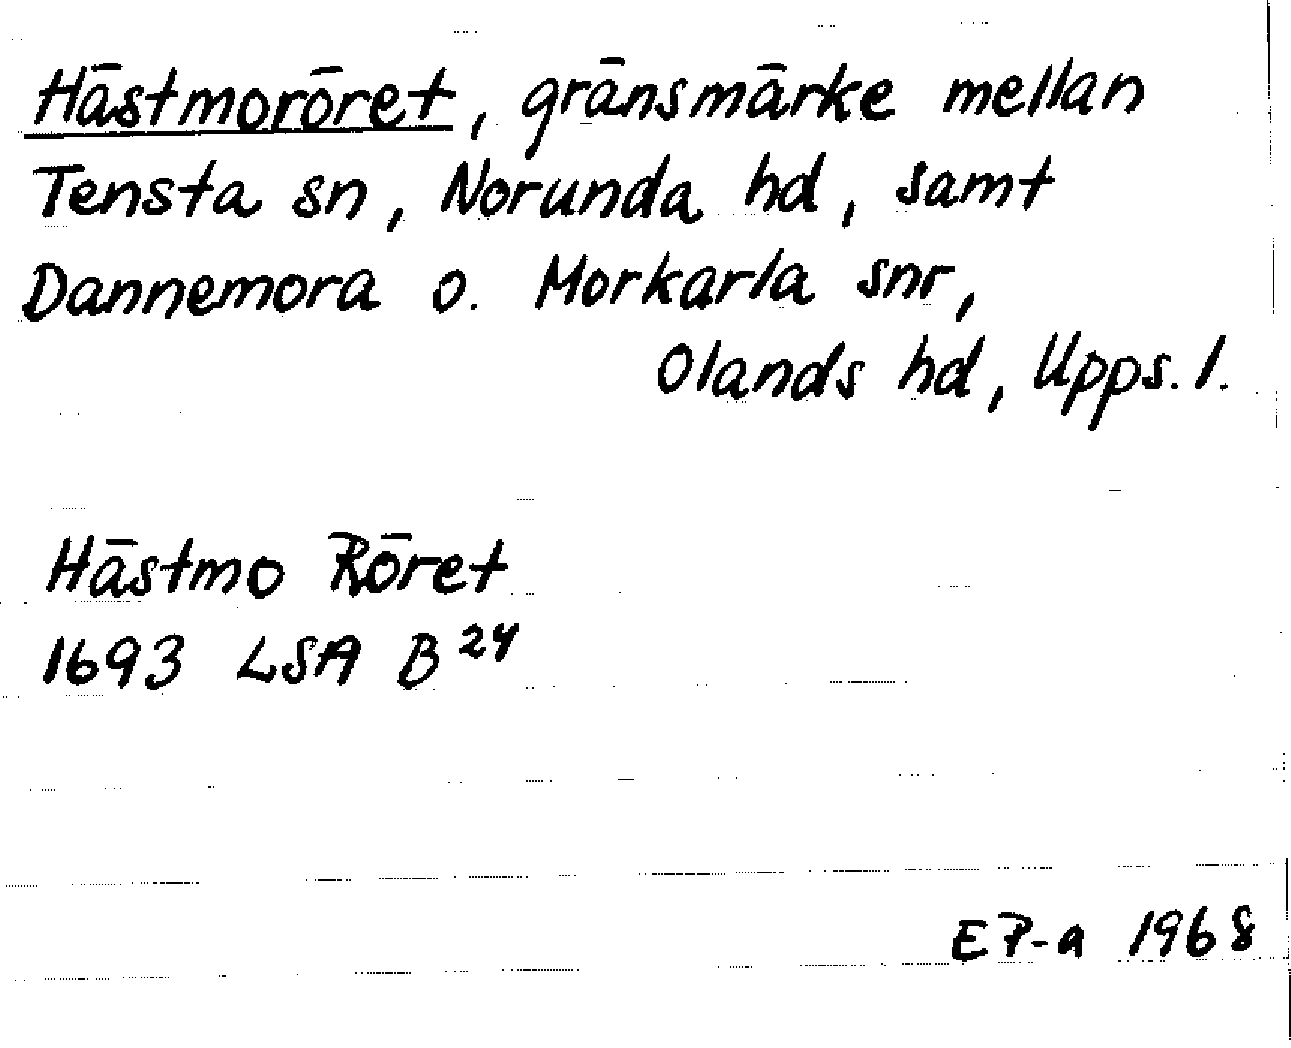 Hästmoröret, gränsmärke mellan
Tensta sn, Norunda hd, samt
Dannemora o. Morkarla snr,
Olands hd, Upps. l.
Hästmo Röret
1693 LSA B 24
EP-a 1968